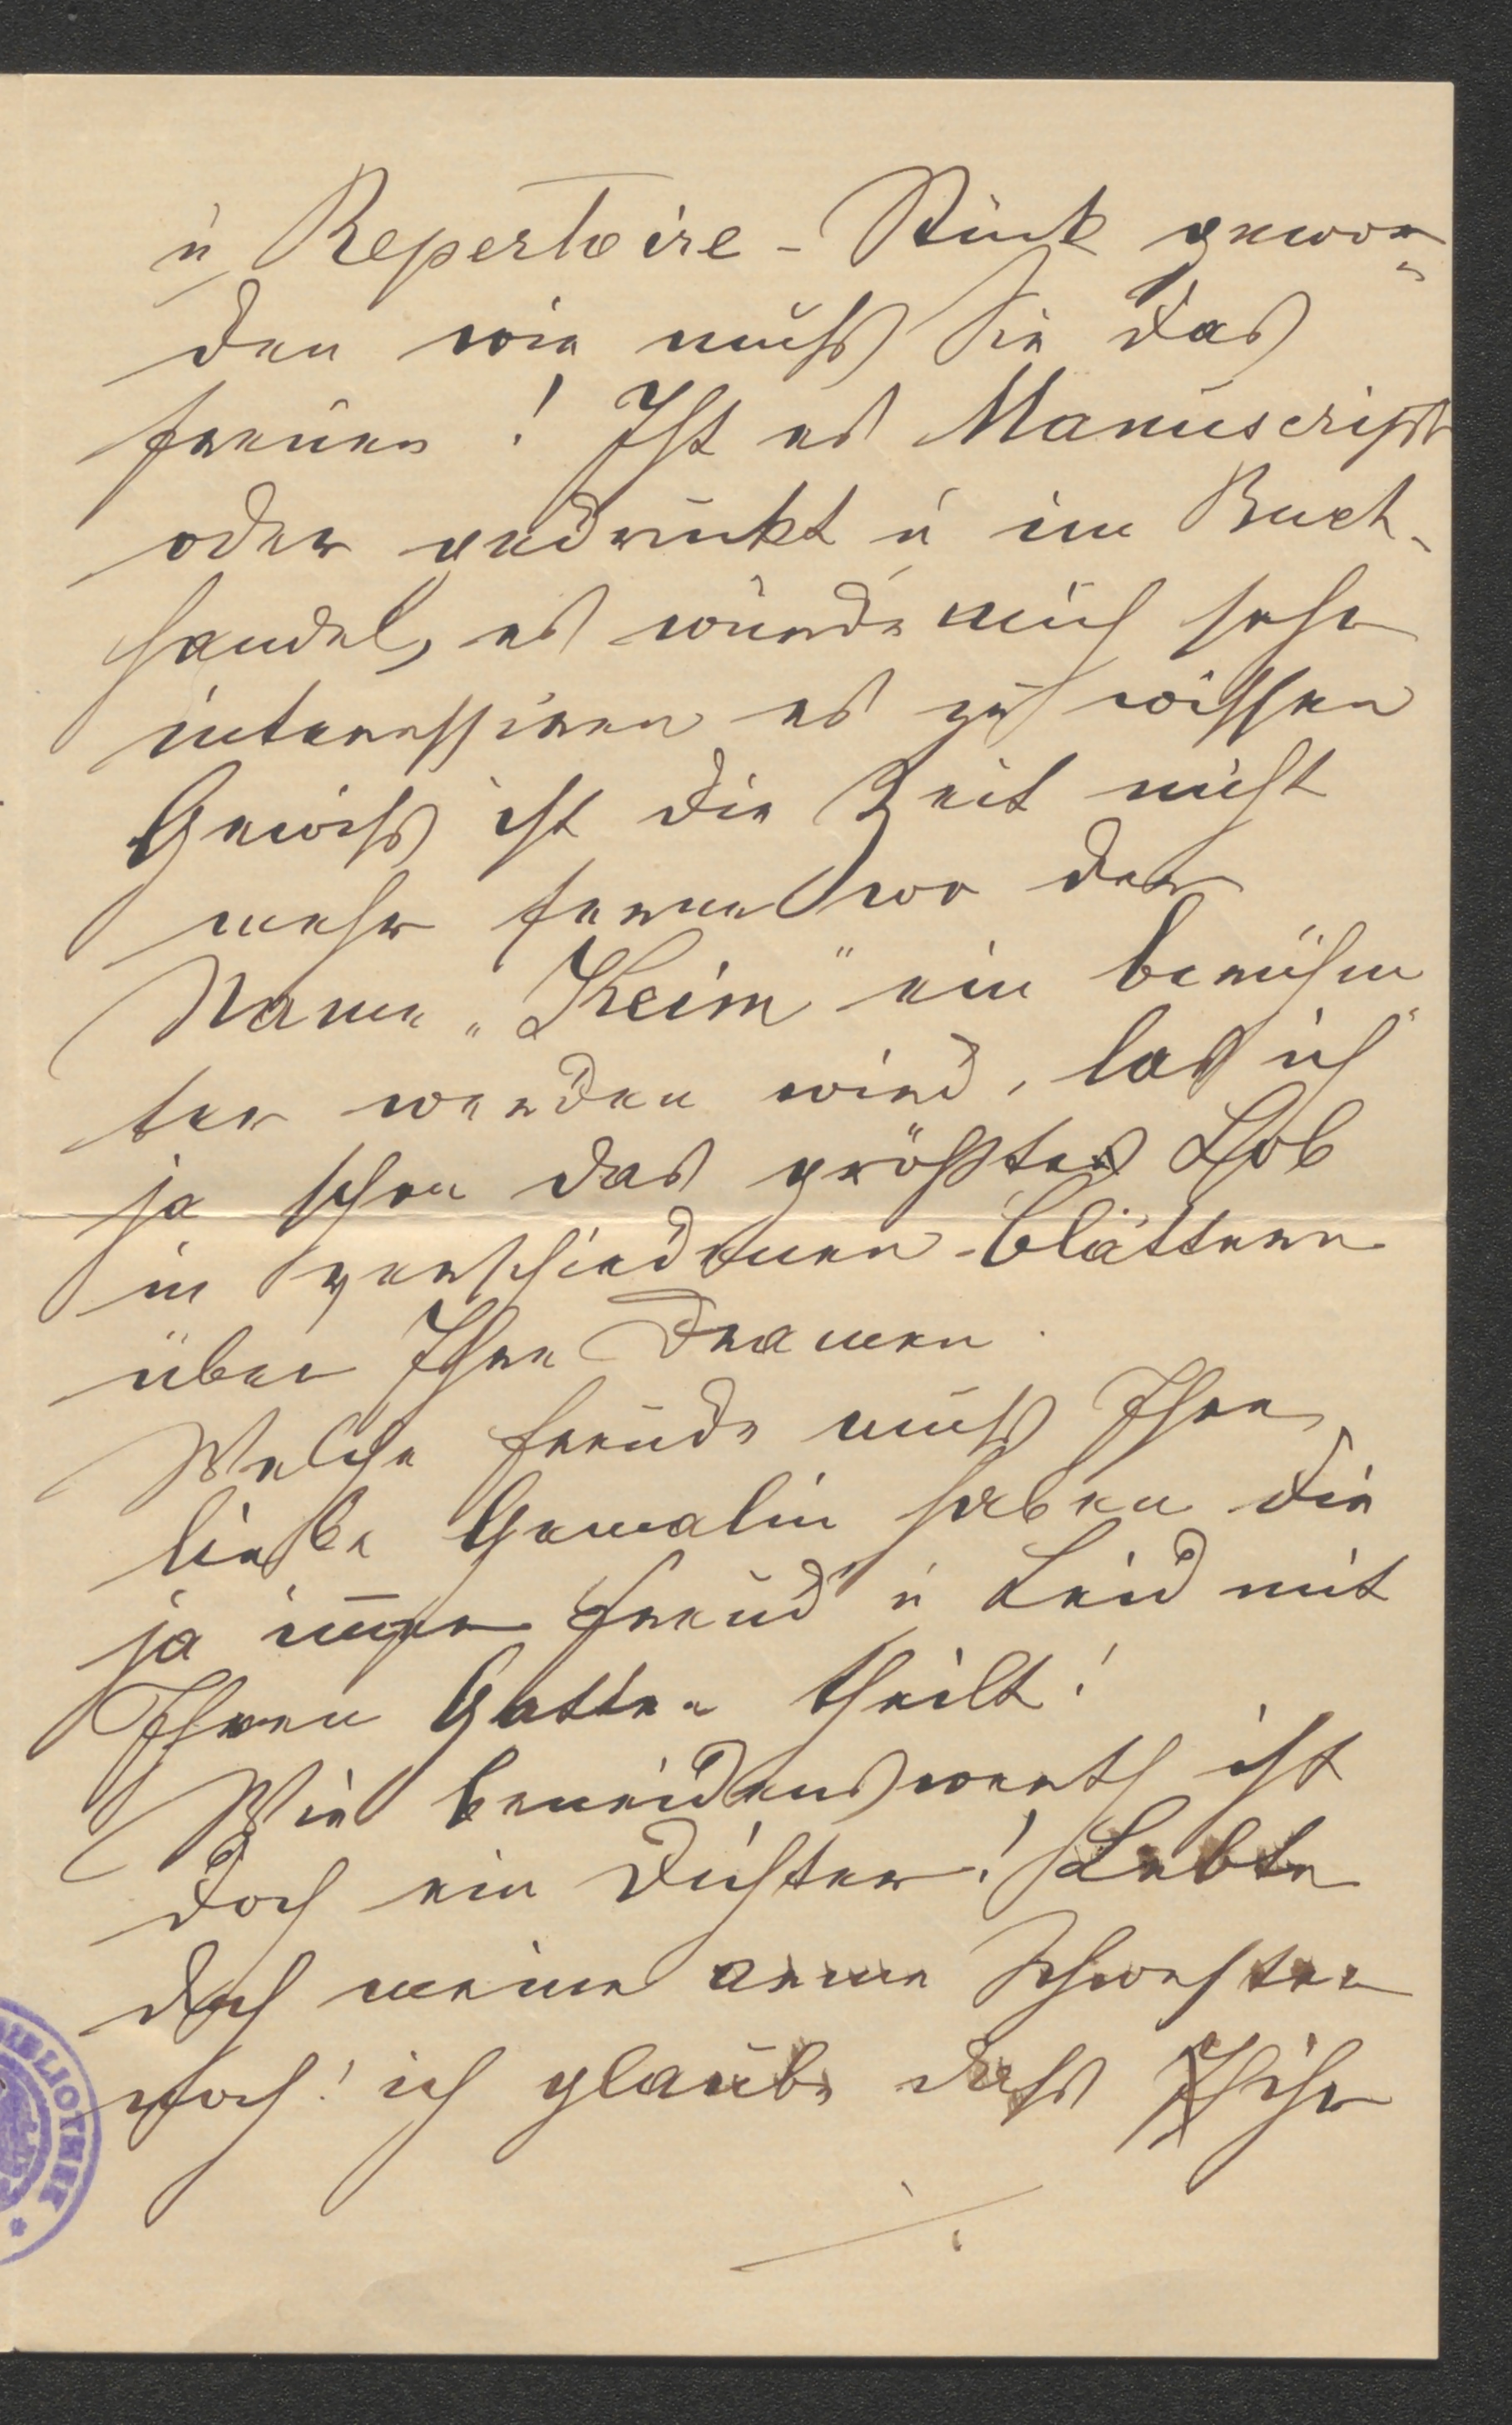 u Repertoire-Stück gewor-
den wie muß Sie das
freuen! Ist es Manuscript
oder gedruckt u im Buch-
handel, es würde mich sehr
interessiren es zu wissen
Gewiß ist die Zeit nicht
mehr ferne wo der
Name „Keim" ein berühm-
ter werden wird, las ich
ja schon das größte Lob
in verschiedenen Blättern
über Ihre Dramen.
Welche Freude muß Ihre
liebe Gemalin haben die
ja immer Freud u Leid mit
Ihren Gatten theilt!
Wie beneidenswerth ist
doch ein Dichter! Lebte
doch meine arme Schwester
noch! ich glaube daß ihr
./.
BIBLIOTHEK